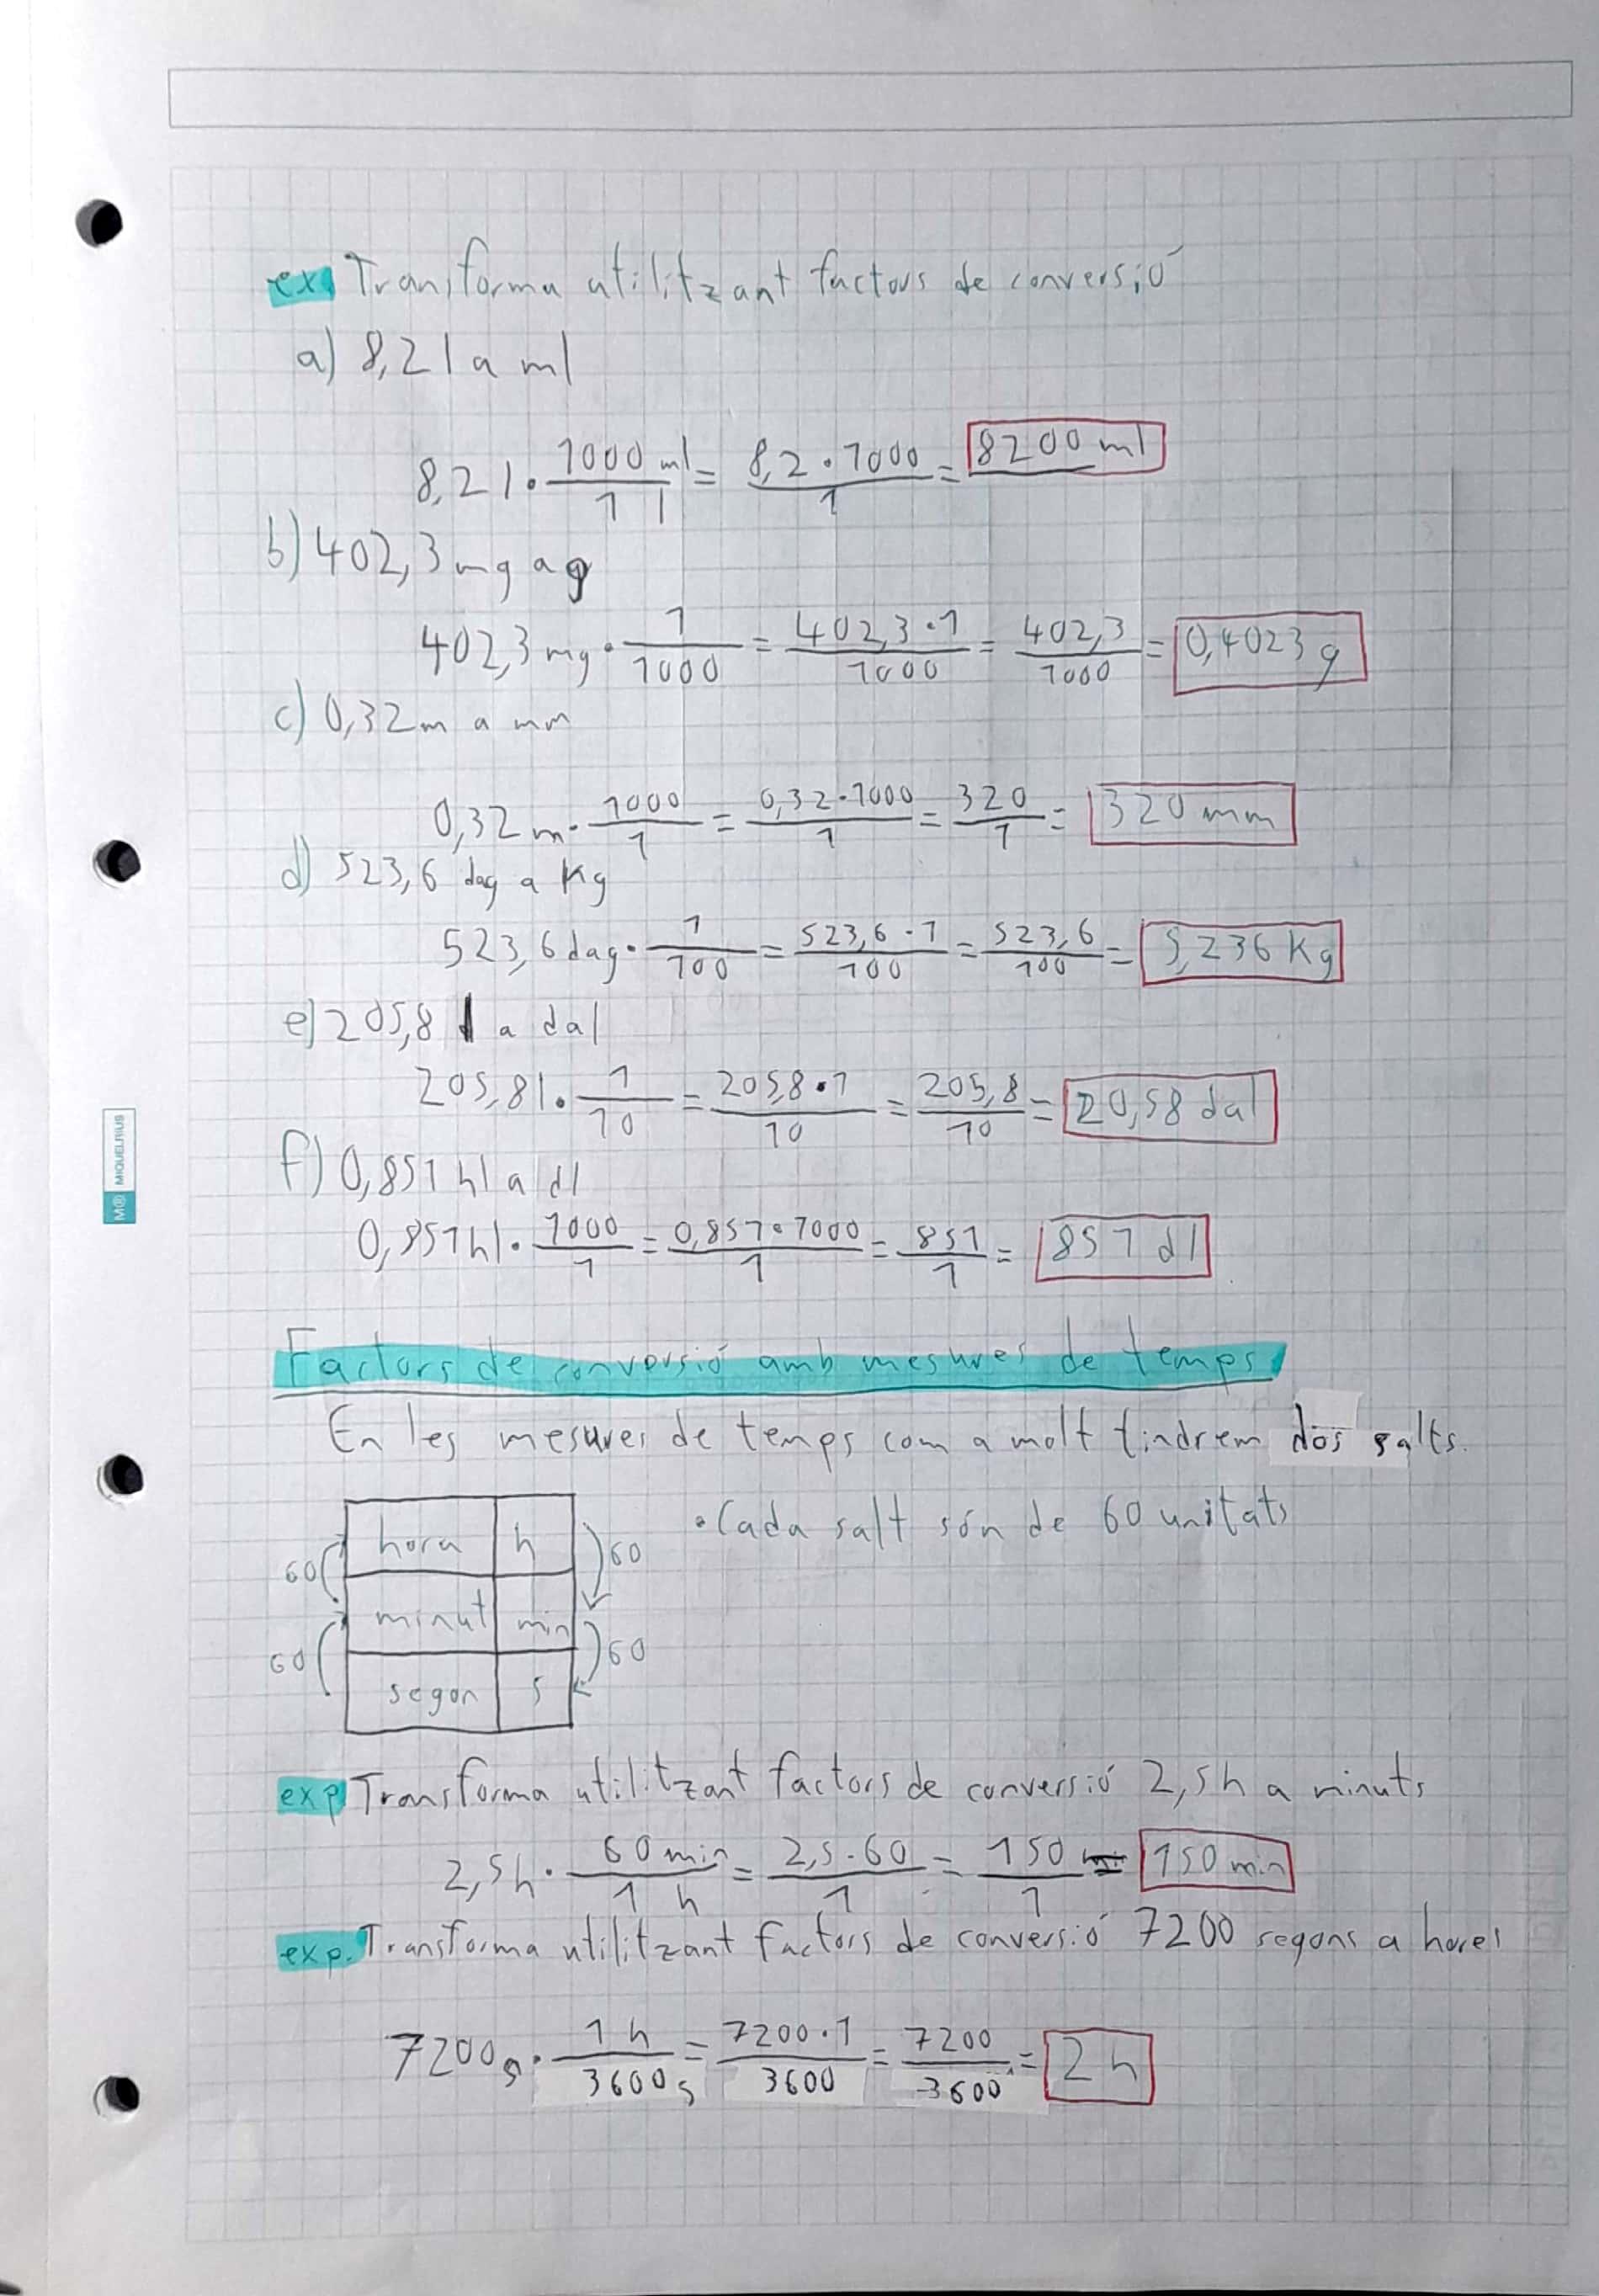 ex Transforma utilitzant factors de conversió
a) 8,2 l a ml
8,2 l · 1000 ml / 1 l = 8,2 · 1000 / 1 = 8200 ml
b) 402,3 mg a g
402,3 mg · 1 / 1000 = 402,3 · 1 / 1000 = 402,3 / 1000 = 0,4023 g
c) 0,32 m a mm
0,32 m · 1000 / 1 = 0,32 · 1000 / 1 = 320 / 1 = 320 mm
d) 523,6 dag a Kg
523,6 dag · 1 / 100 = 523,6 · 1 / 100 = 523,6 / 100 = 5,236 Kg
e) 205,8 l a dal
205,8 l · 1 / 10 = 205,8 · 1 / 10 = 205,8 / 10 = 20,58 dal
f) 0,851 hl a dl
0,851 hl · 1000 / 1 = 0,851 · 1000 / 1 = 851 / 1 = 851 dl
M® MIQUELRIUS
Factors de conversió amb mesures de temps
En les mesures de temps com a molt tindrem dos salts.
· Cada salt són de 60 unitats
60 hora h 60
60 minut min 60
segon s
exp Transforma utilitzant factors de conversió 2,5 h a minuts
2,5 h · 60 min / 1 h = 2,5 · 60 / 1 = 150 / 1 = 150 min
exp. Transforma utilitzant factors de conversió 7200 segons a hores
7200 s · 1 h / 3600 s = 7200 · 1 / 3600 = 7200 / 3600 = 2 h